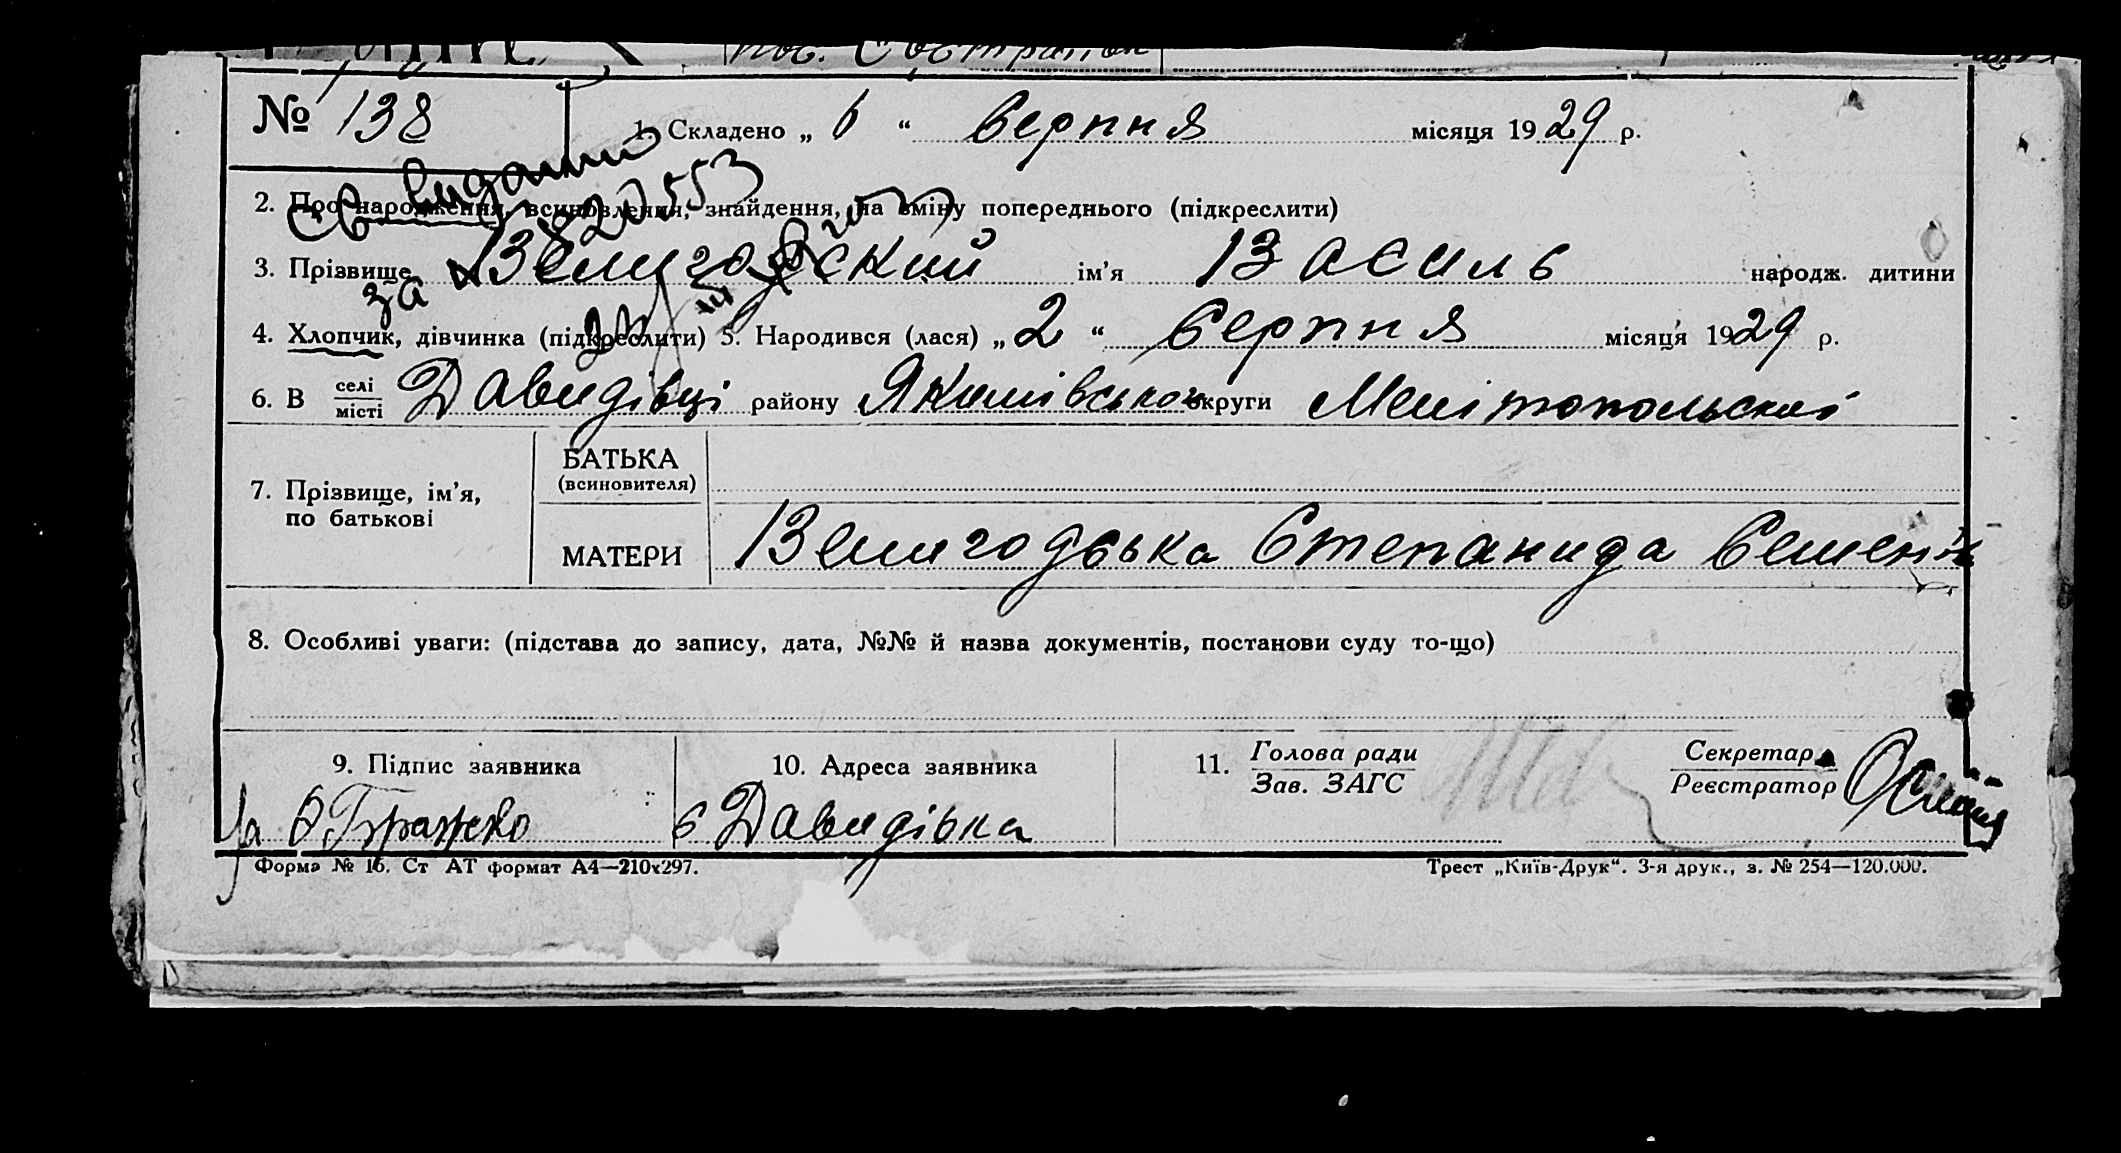 № 138
1. Складено „ 6 “ Серпня місяця 1929 р.
Св. видано
2. Про народження, всиновлення, знайдення, на зміну попереднього (підкреслити)
3. Прізвище Велигодский ім’я Василь народж. дитини
за
4. Хлопчик, дівчинка (підкреслити) 5. Народився (лася) „ 2 “ Серпня місяця 1929 р.
6. В селі/місті Давидівці району Якимівського округи Мелітопольскої
7. Прізвище, ім’я, по батькові
БАТЬКА
(всиновителя)
МАТЕРИ Велигодська Степанида Семен
8. Особливі уваги: (підстава до запису, дата, №№ й назва документів, постанови суду то-що)
9. Підпис заявника 10. Адреса заявника 11. Голова ради/Зав. ЗАГС Секретар/Реєстратор
с Давидівка
Форма № 16. Ст АТ формат А4—210х297. Трест „Київ-Друк“. 3-я друк., з. № 254—120.000.